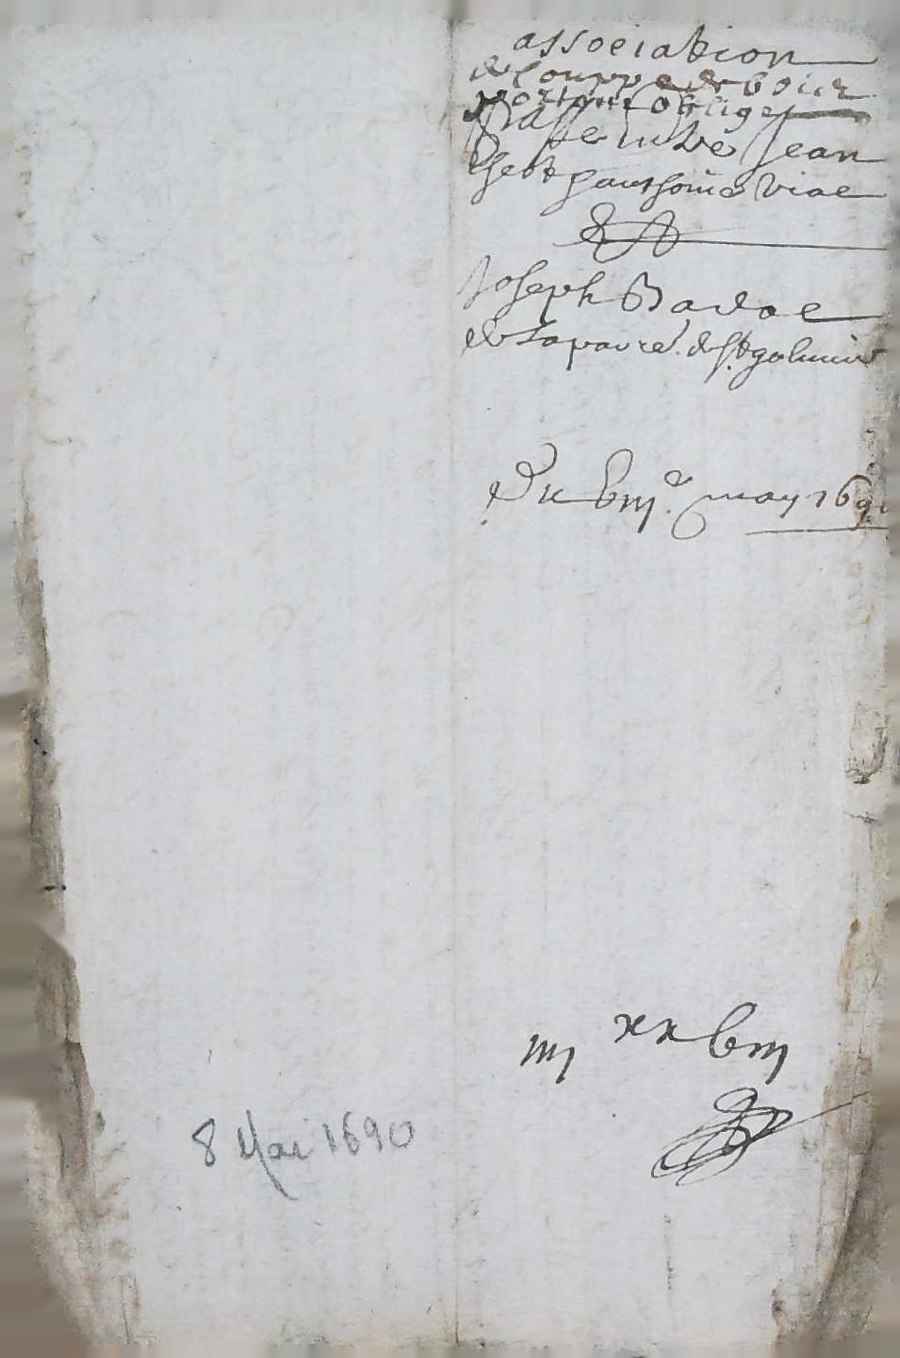 association
de couppe de bois
portant oblige
passe entre Jean
et Vial
Joseph Badol
de la de St galmier
Du biij.e may 1690
iiij xx biij
8 Mai 1690